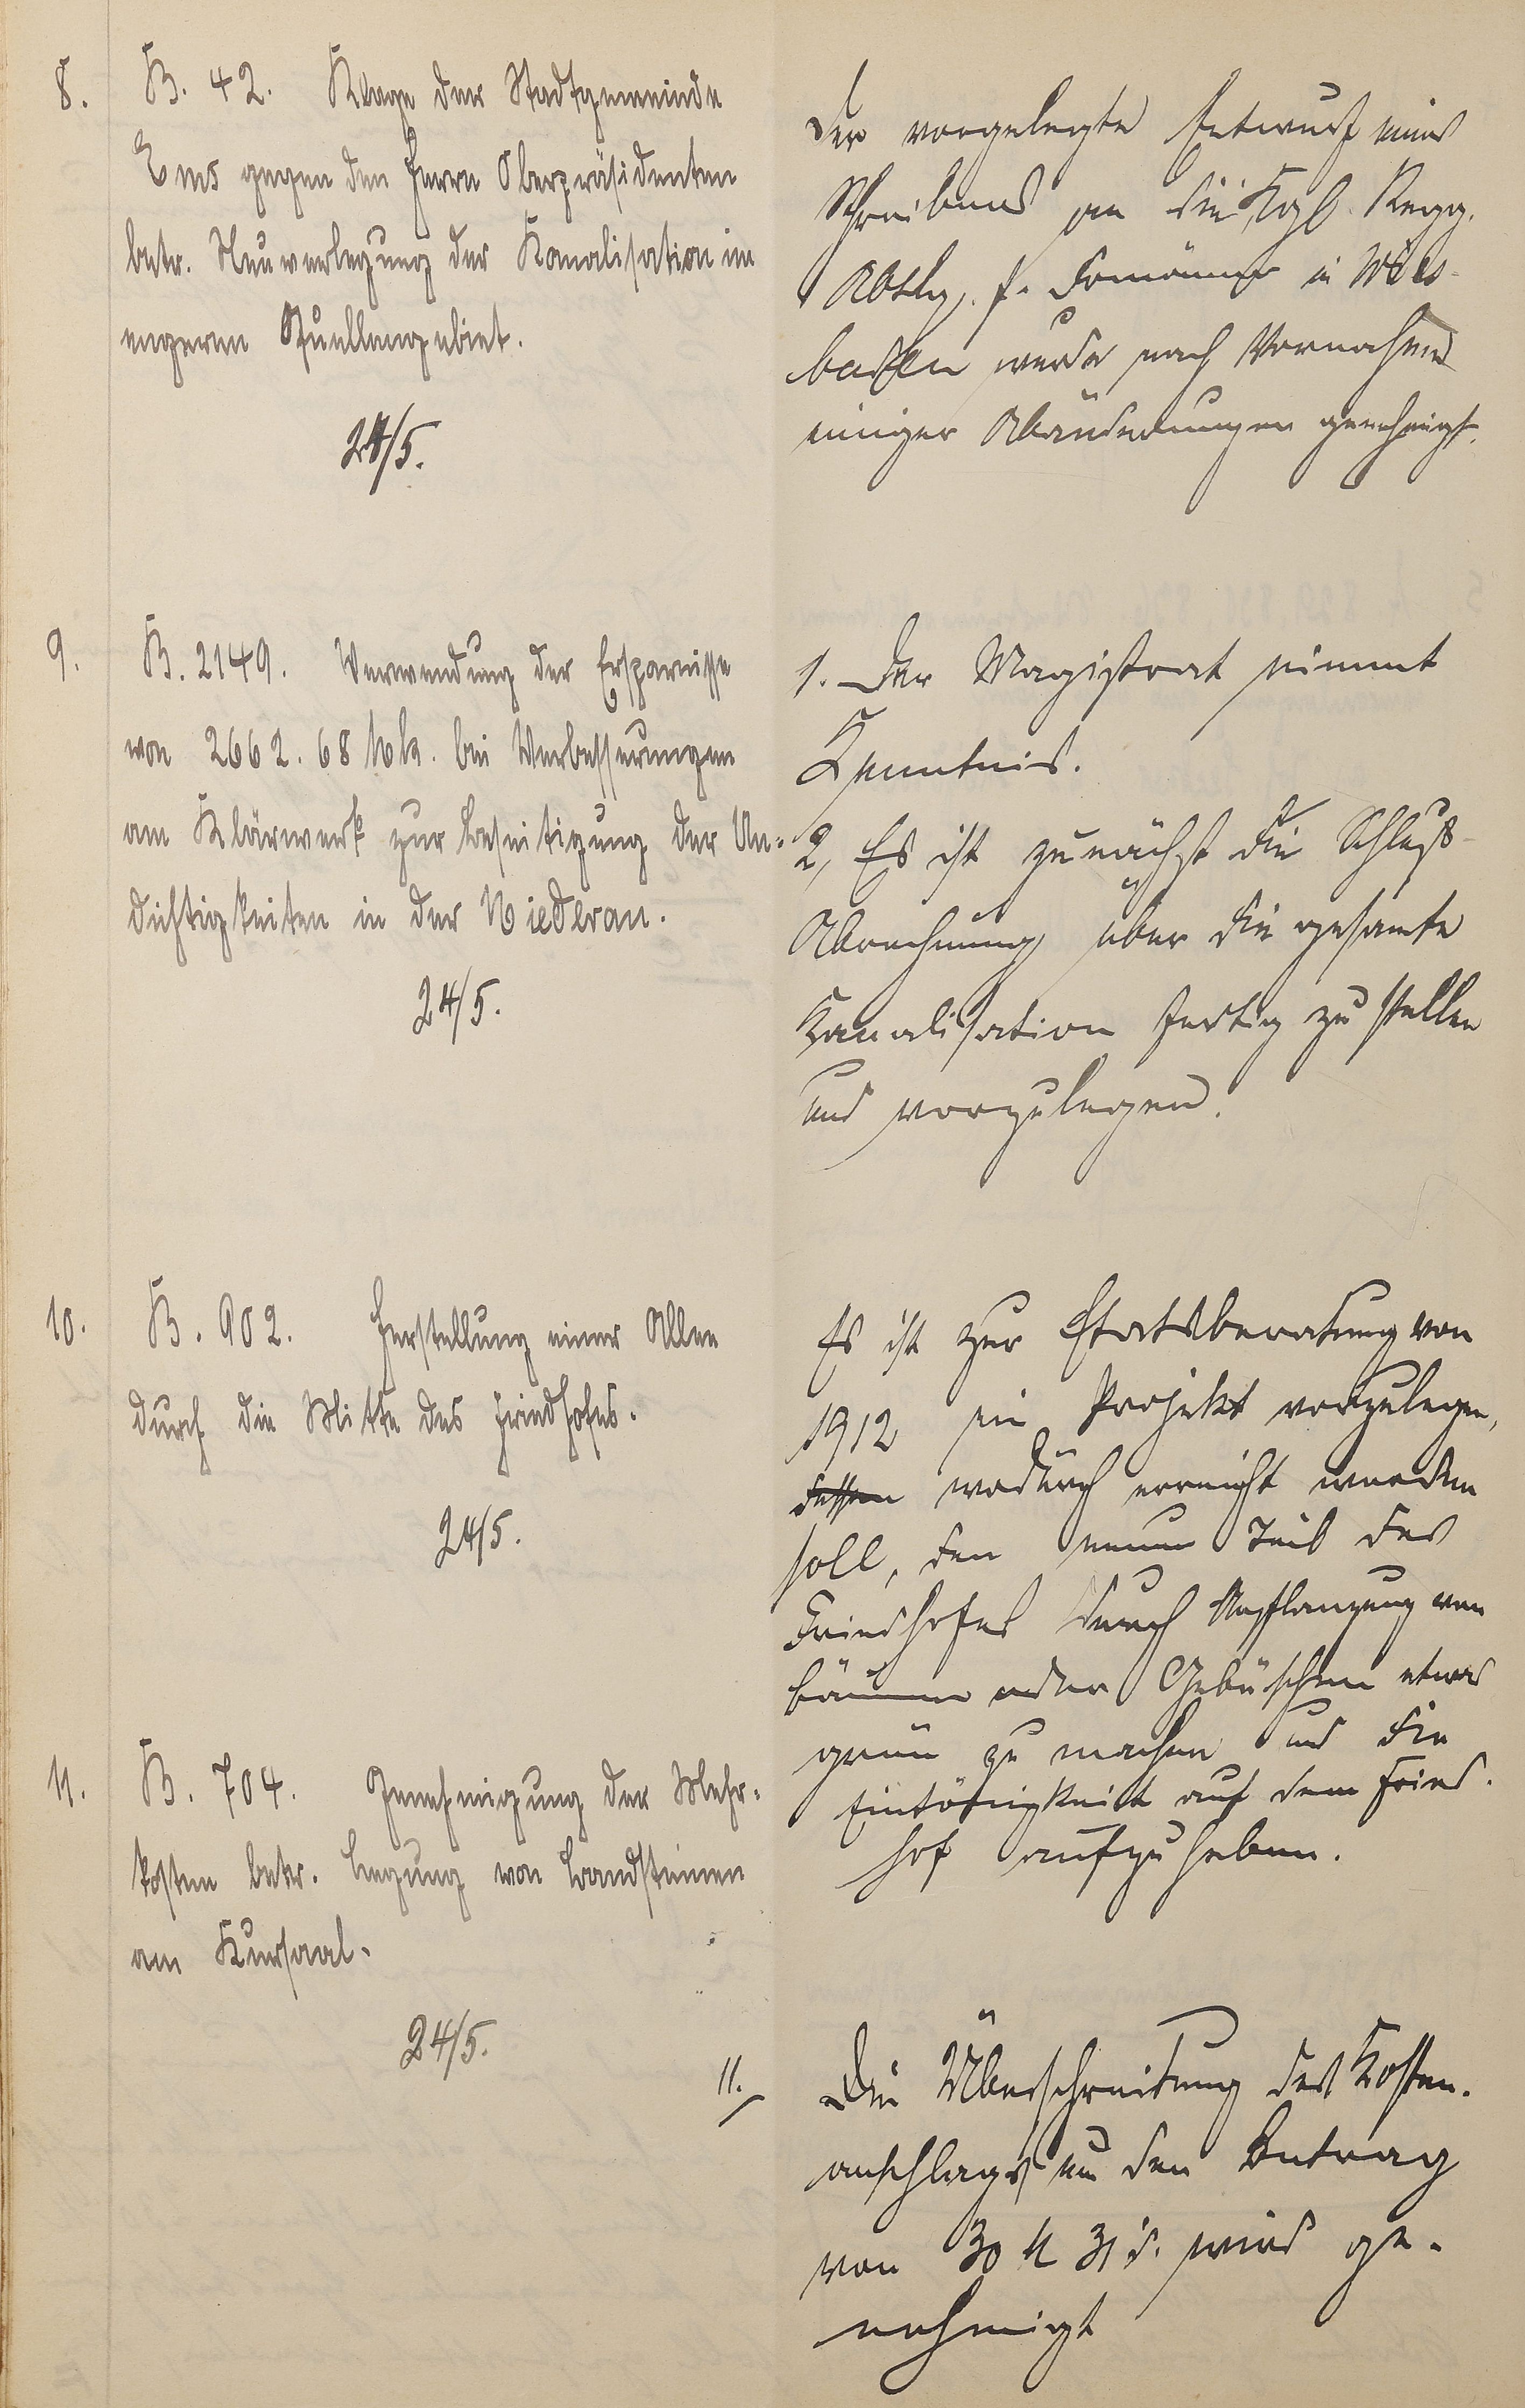 8. B. 42. Klage der Stadtgemeinde
Ems gegen den Herrn Oberpräsidenten
betr. Neuverlegung der Kanalisation im
engeren Quellengebiet.
24/5.
Der vorgelegte Entwurf eines
Schreibens an die Kgl. Regg.
Abtlg. f. Domänen in Wies-
baden wurde nach Vornahme
einiger Abänderungen genehmigt.
9. B. 2149. Verwendung der Ersparnisse
von 2662.68 Mk. bei Verbesserungen
am Klärwerk zur Beseitigung der Un-
dichtigkeiten in der Niederau.
24/5.
1. Der Magistrat nimmt
Kenntnis.
2, Es ist zunächst die Schluß-
Abrechnung über die gesamte
Kanalisation fertig zu stellen
und vorzulegen.
10. B. 902. Herstellung einer Allee
durch die Mitte des Friedhofes.
24/5.
Es ist zur Etatsberatung von
1912 ein Projekt vorzulegen,
dessen wodurch erreicht werden
soll, den neuen Teil des
Friedhofes durch Anpflanzung von
Bäumen oder Gebüschen etwas
grün zu machen und die
Eintönigkeit auf dem Fried-
hof aufzuheben.
11. B. 704. Genehmigung der Mehr-
kosten betr. Legung von Bandsteinen
am Kursaal.
24/5.
11. Die Überschreitung des Kosten-
anschlags um den Betrag
von 30 M 31 d. wird ge-
nehmigt